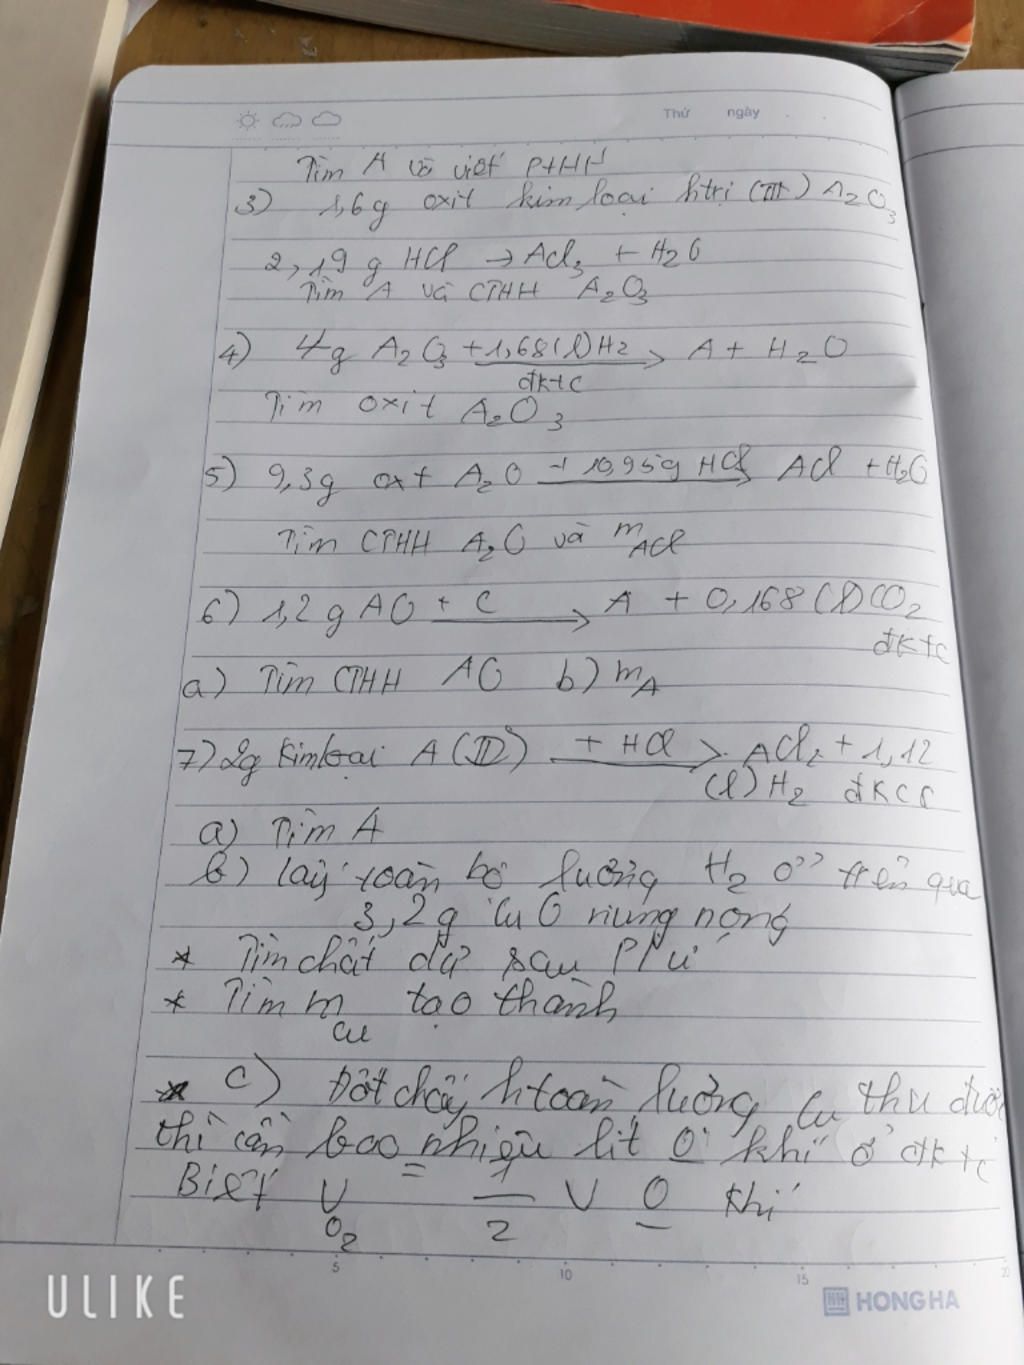 Thứ ngày
Tìm A và viết PTHH
3) 1,6g oxit kim loại htrị (III) A₂O₃
2,19 g HCl → ACl₃ + H₂O
Tìm A và CTHH A₂O₃
4) 4g A₂O₃ +1,68(l)H₂ → A + H₂O
đktc
Tìm oxit A₂O₃
5) 9,3g oxt A₂O + 10,95g HCl → ACl + H₂O
Tìm CTHH A₂O và mACl
6) 1,2g AO + C → A + 0,168(l)CO₂
đktc
a) Tìm CTHH AO b) mA
7) 2g kim loại A (II) + HCl → ACl₂ + 1,12
(l) H₂ đKC
a) Tìm A
b) lấy toàn bộ lượng H₂ ở trên qua
3,2g CuO nung nóng
* Tìm chất dư sau PỨ
* Tìm mCu tạo thành
* c) Đốt cháy htoàn lượng Cu thu được
thì cần bao nhiêu lít O khí ở đktc
Biết VO₂ = 1/2 V O khí
5 10 15 20
ULIKE
HONG HA